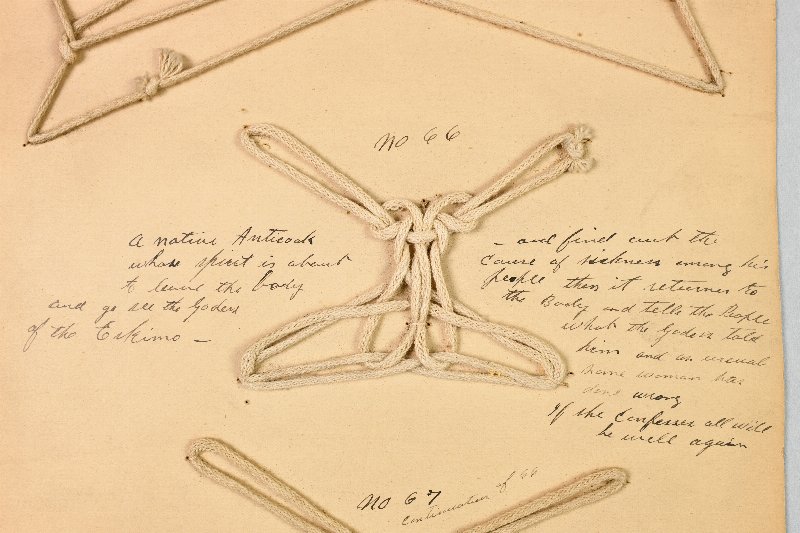 No 66
a native Anticock
whose spirit is about
to leave the body
and go see the Goders
of the Eskimo —
— and find out the
cause of sickness among his
people then it returns to
the Body and tells the People
what the Goders told
him and as usual
some woman has
done wrong
If she confesses all will
be well again
No 67
continuation of 66